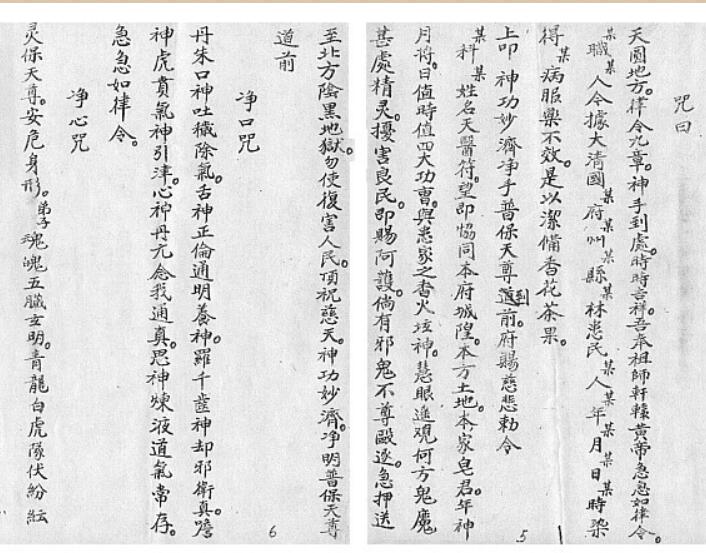 咒曰
天圆地方。律令九章。神手到處。時時吉祥。吾奉祖師軒轅黃帝急急如律令。
某職某人今據大清國某府某州某縣某林患民某人某年某月某日某時染
得某病服藥不效。是以潔備香花茶果。
上叩 神功妙濟净手普保天尊到前。府賜慈悲勅令
某科某姓名天醫符。望即協同本府城隍。本方土地。本家皂君。年神
月將。日值時值四大功曹。與患家之香火垓神。慧眼進观何方鬼魔
甚處精灵。擾害良民。即賜阿護。倘有邪鬼不尊毆逐。急押送
5
至北方陰黑地獄。勿使復害人民。頂祝慈天。神功妙濟。净明普保天尊
道前
净口咒
丹朱口神吐穢除氣。舌神正倫通明養神。羅千齒神却邪衛真。喉
神虎賁氣神引津。心神丹元念我通真。思神煉液道氣常存。
急急如律令。
净心咒
灵保天尊。安危身形。弟子魂魄五臟玄明。青龍白虎隊伏紛紜
6